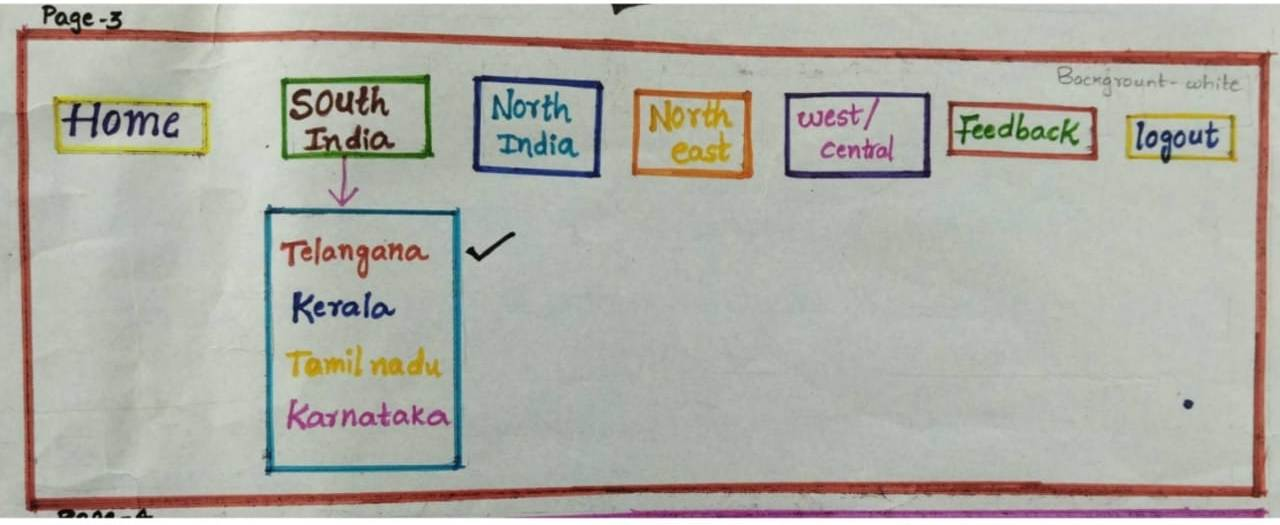 Page-3
Backgrount-white
Home
South
India
North
India
North
east
west/
central
Feedback
logout
Telangana
Kerala
Tamil nadu
Karnataka
Page-4